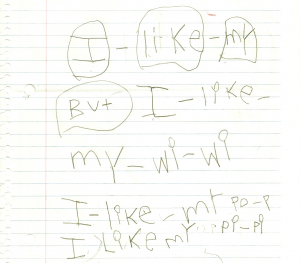 I - like - my
But I - like -
my - wi - wi
I - like - my po - p
I like my pi - pi